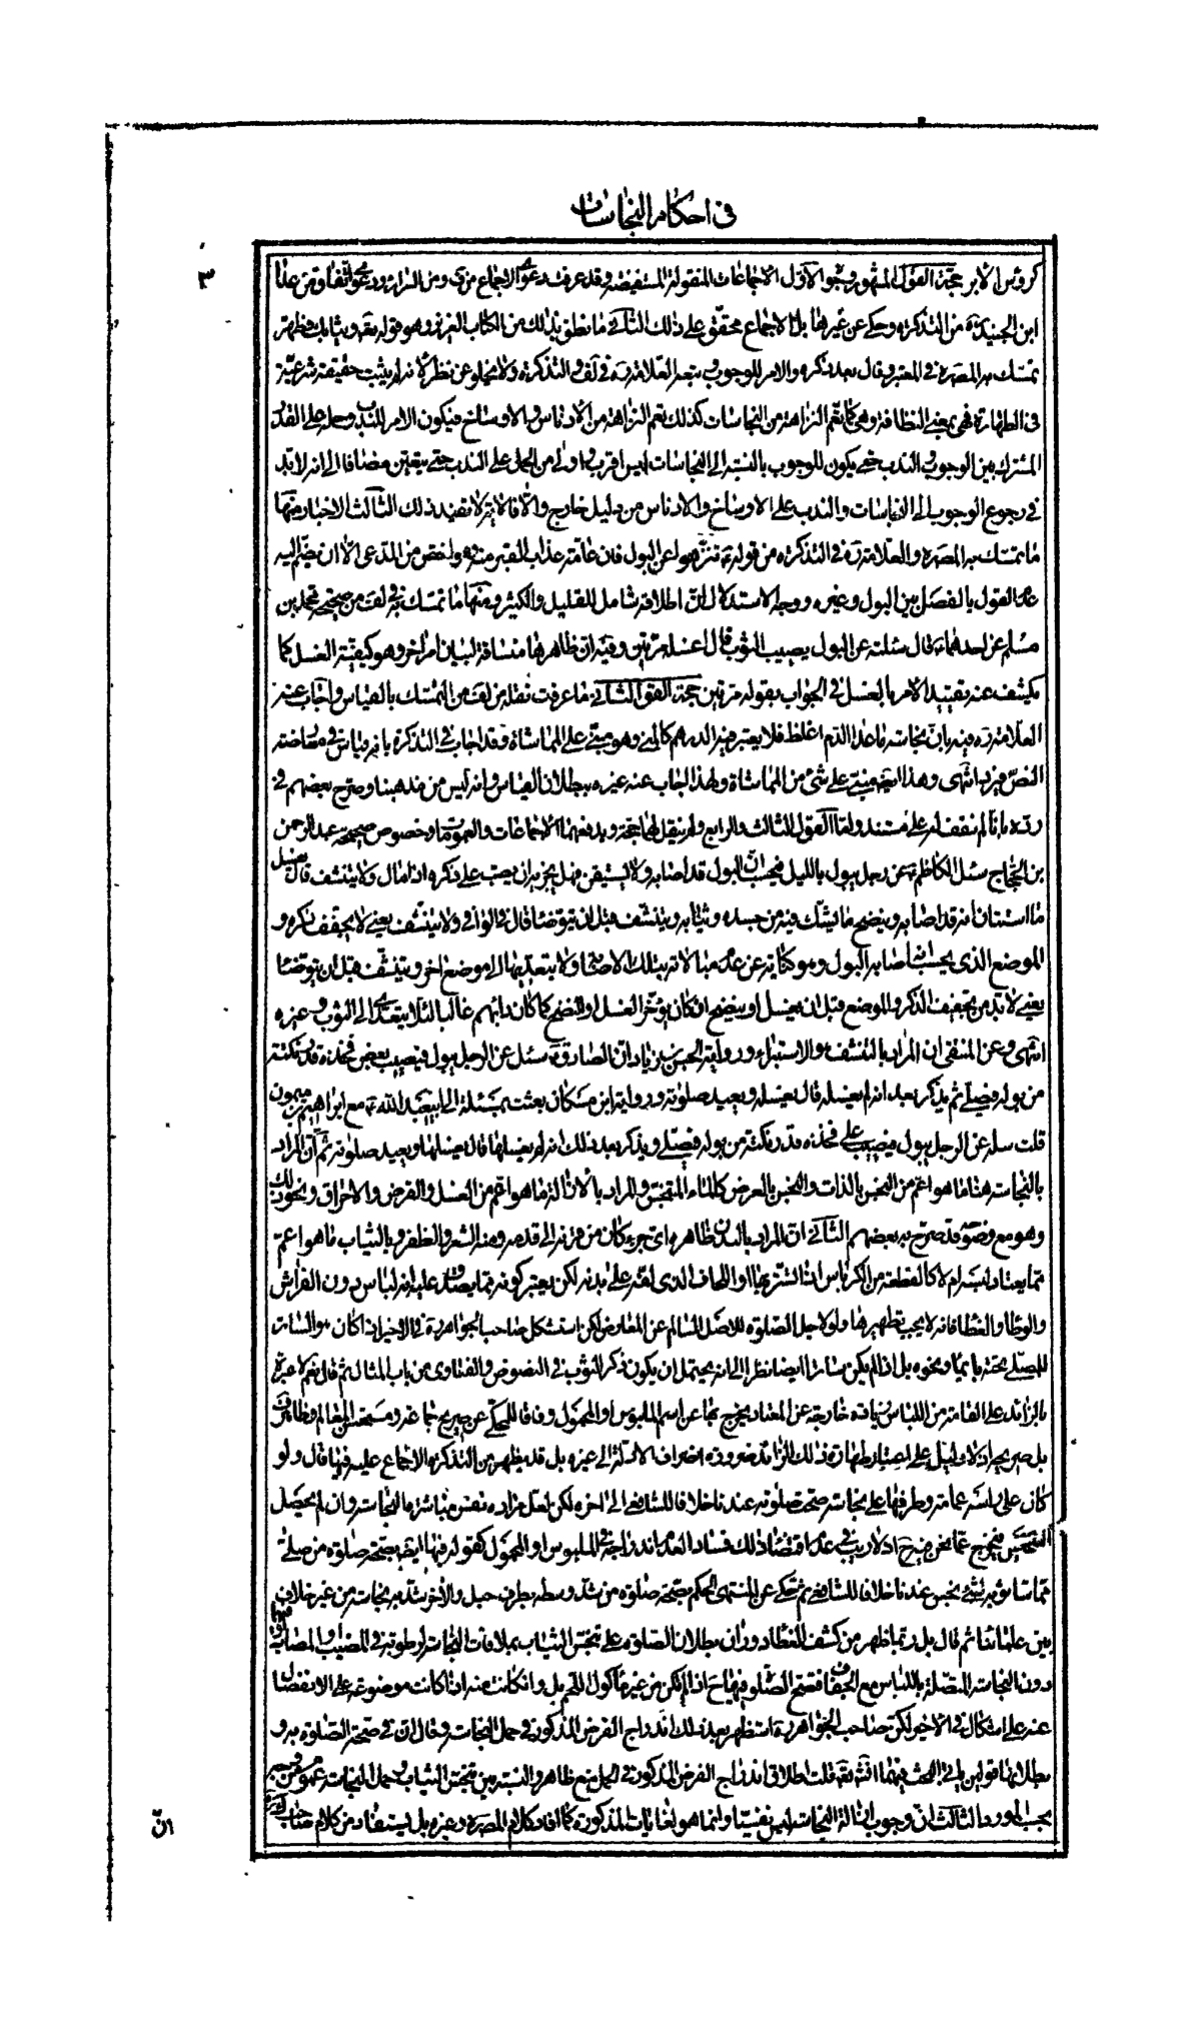 في احكام النجاسات
٣
كرؤس الابر حجة القول المشهور وجوه الأول الاجماعات المنقولة المستفيضة وقد عرفت دعوى الاجماع من ف ومن السرائر ودعوى اتفاق من عدا
ابن الجنيد ره من التذكرة وحكى عن غيرها بل الاجماع محقق على ذلك الثاني ما نطق بذلك من الكتاب العزيز وهو قوله تعه وثيابك فطهر
تمسك به المصره في المعتبر وقال بعد ذكره والامر للوجوب وتبعه العلامة ره في لف والتذكرة ولا يخلو عن نظر لأنه لم يثبت حقيقة شرعية
في الطهارة فهي بمعنى النظافة وهي كما تعم النزاهة من النجاسات كذلك تعم النزاهة من الادناس والاوساخ فيكون الامر للندب وحمله على القدر
المشترك بين الوجوب والندب حتى يكون للوجوب بالنسبة الى النجاسات ليس اقرب واولى من الحمل على الندب حتى يتعين مضافا الى انه لابد
في رجوع الوجوب الى النجاسات والندب على الاوساخ والادناس من دليل خارج والا فالآية لا تفيد ذلك الثالث الاخبار منها
ما تمسك به المصره والعلامة ره في التذكرة من قوله ع تنزهوا عن البول فان عامة عذاب القبر منه وهو اخص من المدعى الا ان يضم اليه
عدم القول بالفصل بين البول وغيره ووجه الاستدلال ان اطلاقه شامل للقليل والكثير ومنها ما تمسك به في لف من صحيح محمد بن
مسلم عن احدهما ع قال سئلته عن البول يصيب الثوب قال اغسله مرتين وفيه ان ظاهرها مساقة لبيان امر اخر وهو كيفية الغسل كما
يكشف عنه تقييد الامر بالغسل في الجواب بقوله مرتين حجة القول الثاني ما عرفت نقله من لف من التمسك بالقياس واجاب عنه
العلامة ره فيه بان نجاسة ما عدا الدم اغلظ فلا يعتبر فيه الدرهم كالمني وهو مبني على المماشاة وقد اجاب في التذكرة بانه قياس في معارضة
النص فيرد انتهى وهذا ايضه مبني على شئ من المماشاة ولهذا اجاب عنه غيره ببطلان القياس وانه ليس من مذهبنا وصرح بعضهم في
رده بانا لم نقف له على مستند واما القول الثالث والرابع ولم ينقل لهما حجة ويدفعهما الاجماعات والعمومات وخصوص صحيحة عبد الرحمن
بن الحجاج سئل الكاظم ع عن رجل يبول بالليل فيحسب ان البول قد اصابه ولا يستيقن فهل يجزيه ان يصب على ذكره اذا بال ولا يتنشف قال يغسل
ما استبان انه قد اصابه وينضح ما يشك فيه من جسده وثيابه ويتنشف قبل ان يتوضأ قال في الوافي ولا يتنشف يعني لا يجفف ذكره و
الموضع الذي يحسب انه اصابه البول وهو كناية عن عدم مبالاته بتلك الاصابة ولا يتعديها الى موضع اخر ويتنشف قبل ان يتوضأ
يعني لابد من تجفيف الذكر والموضع قبل ان يغسل او ينضح ان كان يؤخر الغسل او النضح كما كان دابهم غالبا لئلا يتعدى الى الثوب وغيره
انتهى وعن المنتقى ان المراد بالتنشف هو الاستبراء ورواية الحسن بن زياد ان الصادق ع سئل عن الرجل يبول فيصيب بعض فخذه قدر نكتة
من بوله فيصلي ثم يذكر بعد انه لم يغسله قال يغسله ويعيد صلوته ورواية ابن مسكان بعثت بمسئلة الى ابيعبد الله ع مع ابراهيم بن ميمون
قلت سله عن الرجل يبول فيصيب على فخذه قدر نكتة من بوله فيصلي ويذكر بعد ذلك انه لم يغسلها قال يغسلها ويعيد صلوته ثم ان المراد
بالنجاسة هنا ما هو اعم من النجس بالذات والنجس بالعرض كالماء المتنجس والمراد بالازالة ما هو اعم من الغسل والقرض والاحراق ونحو ذلك
وهو مع وضوحه قد صرح به بعضهم الثاني ان المراد بالبدن ظاهره اي جزء كان من قرنه الى قدمه ومنه الشعر والظفر وبالثياب ما هو اعم
مما يعتاد لبسه ام لا كالقطعة من الكرباس اذا استتر بها او اللحاف الذي لفه على بدنه لكن يعتبر كونه مما يصدق عليه انه لباس دون الفراش
والوطاء والغطاء فانه لا يجب تطهيرها ولو لاجل الصلوة للاصل السالم عن المعارض لكن استشكل صاحب الجواهر ره في الاخير اذا كان هو الساتر
للمصلي بحته بايماء ونحوه بل اذا لم يكن ساترا ايضا نظرا الى انه يحتمل ان يكون ذكر الثوب في النصوص والفتاوى من باب المثال ثم قال نعم لا عبرة
بالزائد على القامة من اللباس زيادة خارجة عن المعتاد يخرج بها عن اسم الملبوس او المحمول وفاقا للمحكي عن صريح جماعة
بل صريح اذ لا دليل على اعتبار طهارة ذلك الزائد ضرورة انصراف الادلة الى غيره بل قد يظهر من التذكرة الاجماع عليه فيها قال ولو
كان على راسه عمامة وطرفها على نجاسة صحت صلوته عندنا خلافا للشافعي الى اخره لكن لعل مراده نفس مباشرة النجاسة وان لم يحصل
التنجيس فيخرج عما نحن فيه ح اذ لا ريب في عدم اقتضاء ذلك فساد العدم اندراجه في الملبوس او المحمول كقوله فيها ايضه بصحة صلوة من صلى
مماسا ثوبه لشئ نجس عندنا خلافا للشافعي ثم حكى عن المنتهى الحكم بصحة صلوة من شد وسطه بطرف حبل والأخر شد به نجاسة من غير خلاف
بين علمائنا ثم قال بل ربما ظهر من كشف الغطاء دوران بطلان الصلوة على تنجس الثياب بملاقات النجاسة لرطوبة في المصيب او المصاب او فيهما
دون النجاسة المتصلة باللباس مع الجفاف فتصح الصلوة فيها ح اذا لم يكن من غير ماكول اللحم بل وان كانت منه اذا كانت موضوعة على الانفصال
عنه على اشكال في الاخير لكن صاحب الجواهر ره استظهر بعد ذلك اندراج الفرض المذكور في حمل النجاسة وقال ان في صحة الصلوة به و
بطلانها قولين ياتي البحث فيهما انشه تعه قلت اطلاق اندراج الفرض المذكور في الحمل منع ظاهر والنسبة بين تنجس الثياب وحمل النجاسة عموم من وجه
بحسب المورد الثالث ان وجوب ازالة النجاسة ليس نفسيا وانما هو لغايات المذكورة كما افاد كلام المصره وغيره بل يستفاد من كلام صاحب
ان